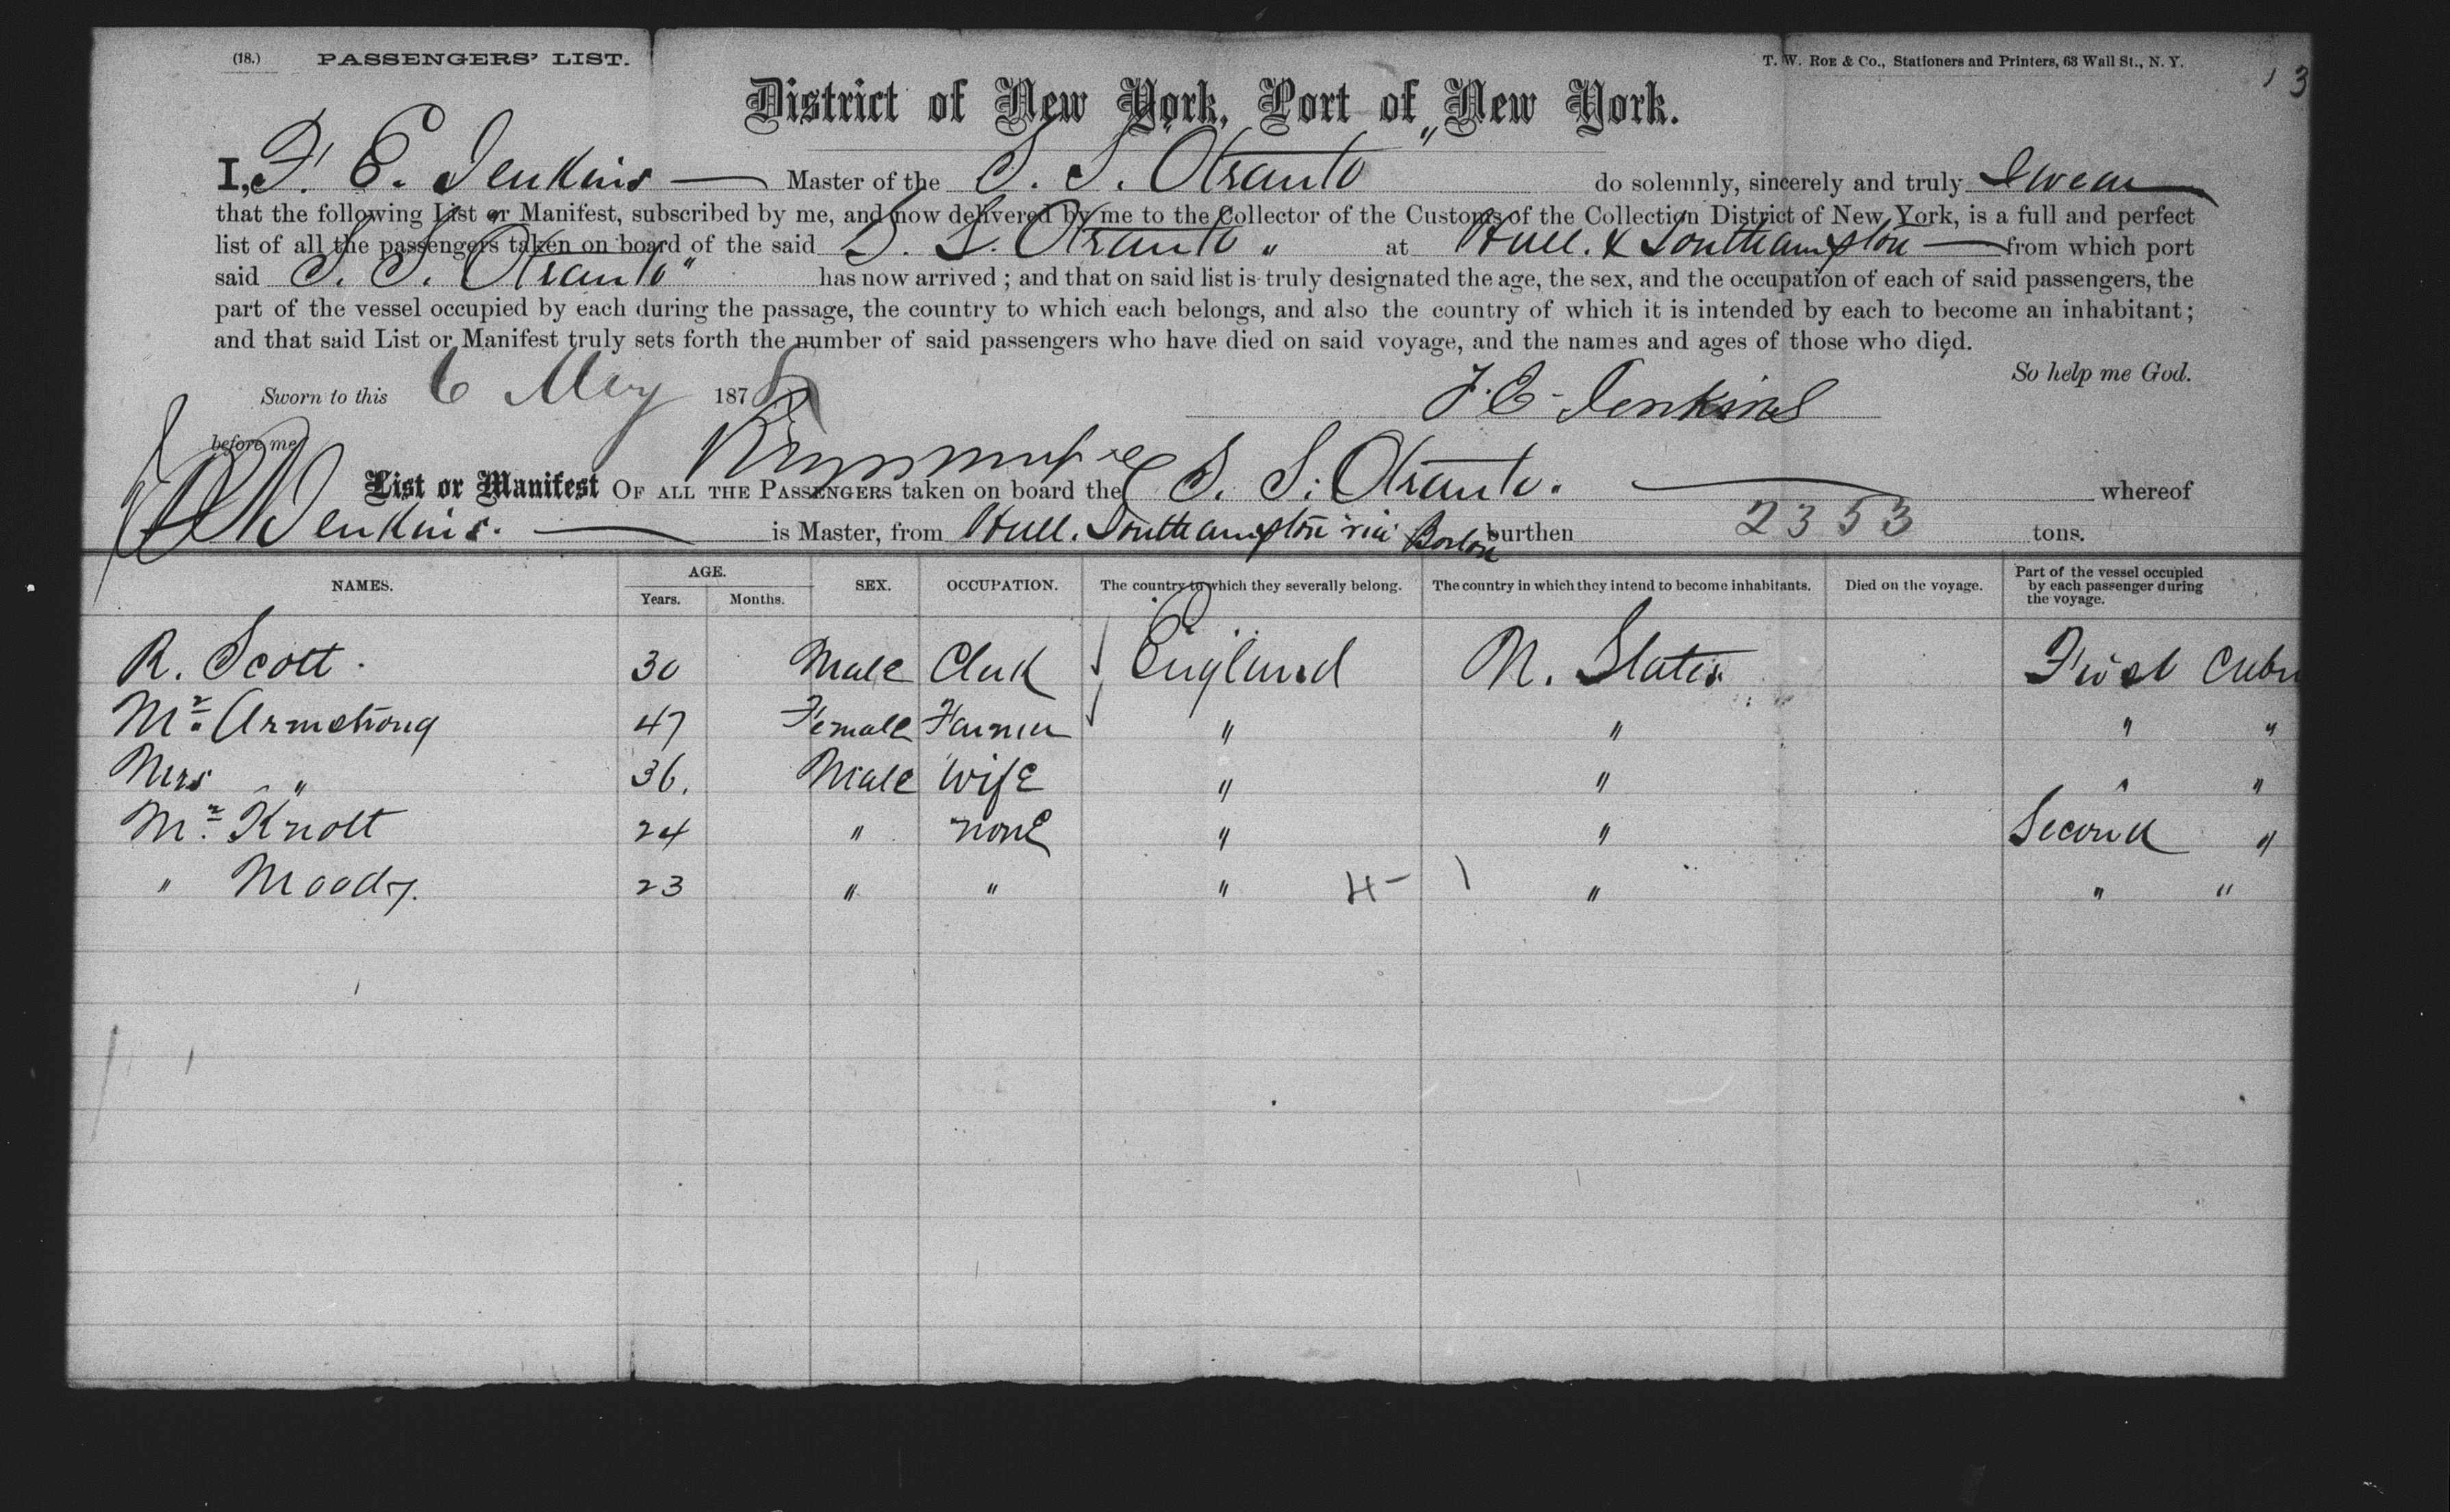 (18.) PASSENGERS' LIST. T. W. ROE & Co., Stationers and Printers, 63 Wall St., N. Y. 13
District of New York, Port of New York.
I, F. E. Jenkins — Master of the S. S. "Otranto" do solemnly, sincerely and truly Swear
that the following List or Manifest, subscribed by me, and now delivered by me to the Collector of the Customs of the Collection District of New York, is a full and perfect
list of all the passengers taken on board of the said S. S. Otranto " at Hull. & Southampton — from which port
said S. S. "Otranto" has now arrived ; and that on said list is truly designated the age, the sex, and the occupation of each of said passengers, the
part of the vessel occupied by each during the passage, the country to which each belongs, and also the country of which it is intended by each to become an inhabitant ;
and that said List or Manifest truly sets forth the number of said passengers who have died on said voyage, and the names and ages of those who died.
So help me God.
Sworn to this 6 May 187 F. E. Jenkins
before me
List or Manifest OF ALL THE PASSENGERS taken on board the S. S. Otranto. — whereof
Jenkins. — is Master, from Hull. Southampton via Boston burthen 2353 tons.
NAMES. AGE. Years. Months. SEX. OCCUPATION. The country to which they severally belong. The country in which they intend to become inhabitants. Died on the voyage. Part of the vessel occupied by each passenger during the voyage.
R. Scott. 30 Male Clerk England U. States. First Cabin
Mr. Armstrong 47 Female Farmer " " " "
Mrs " 36. Male Wife " " " "
Mr. Knott 24 " none " " Second "
" Moody. 23 " " " 4 - 1 " " "